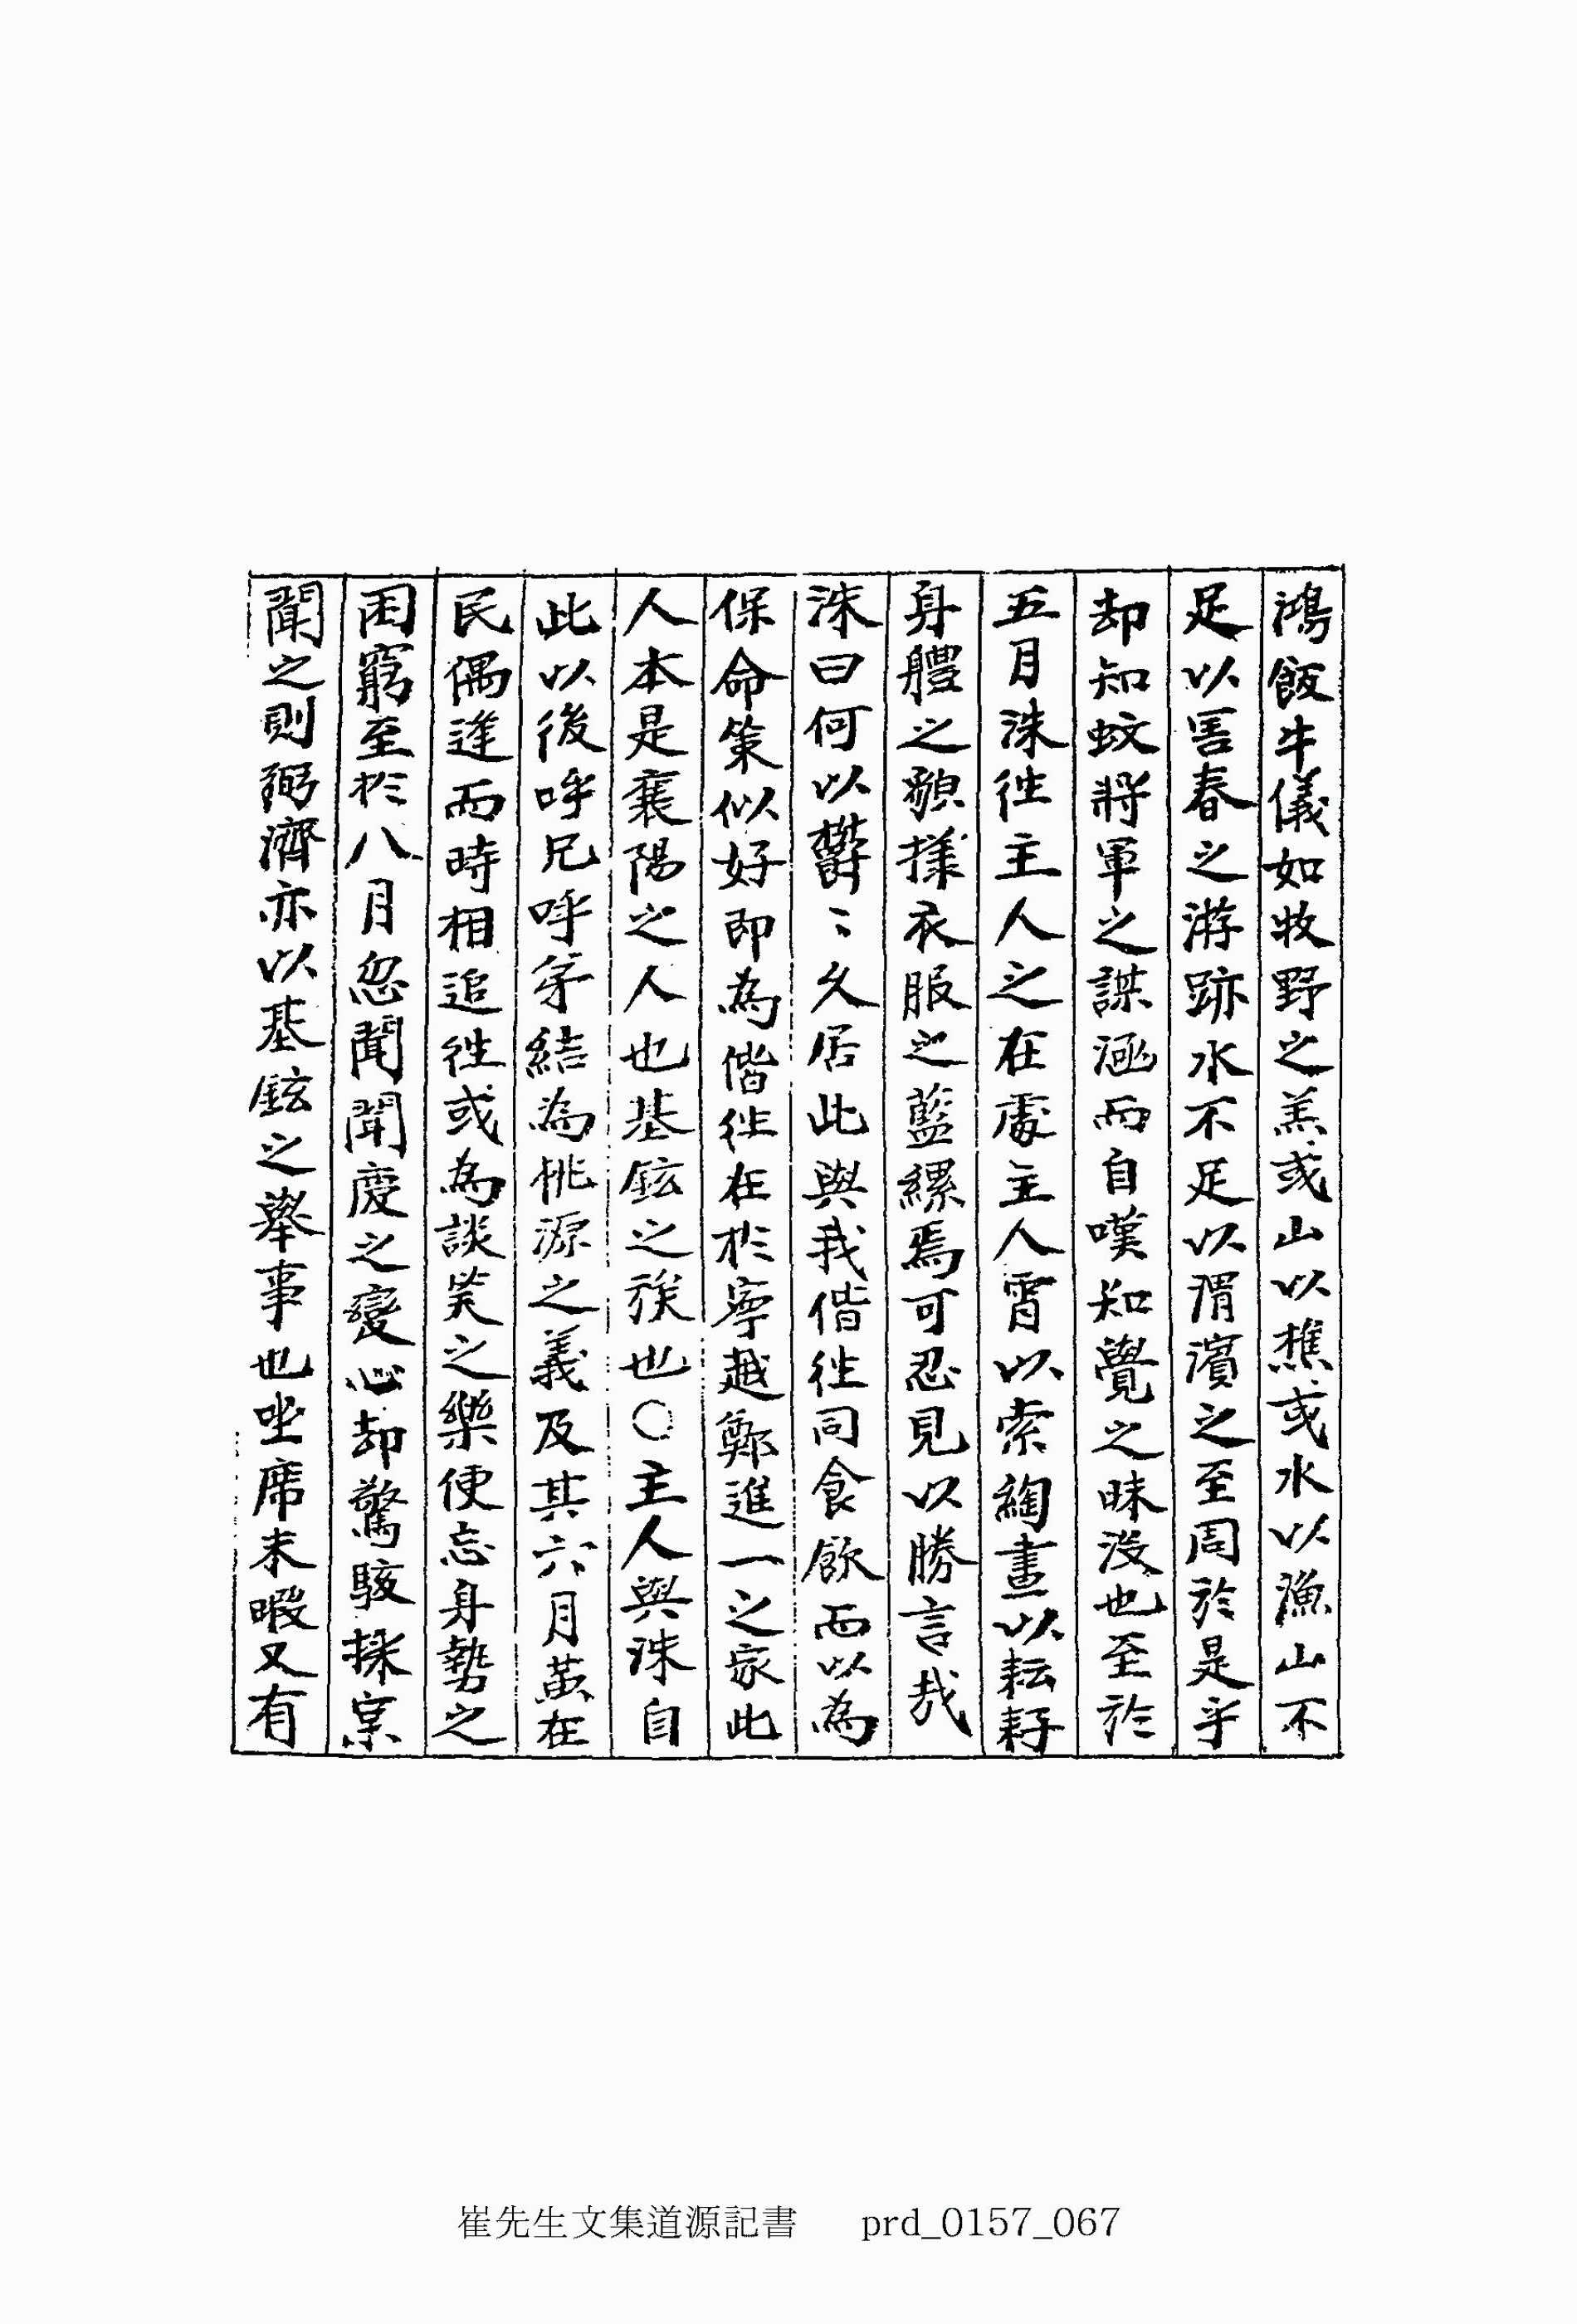 鴻飯牛儀如牧野之羔或山以樵或水以漁山不
足以害春之游跡水不足以渭濱之至周於是乎
却知蚊將軍之謀涵而自嘆知覺之昧沒也至於
五月洙徃主人之在處主人霄以索綯晝以耘耔
身軆之㒵樣衣服之藍縲焉可忍見以勝言哉
洙曰何以欝〻久居此與我偕徃同食飮而以為
保命策似好即為偕徃在於寧越鄭進一之家此
人本是襄陽之人也基鉉之族也○主人與洙自
此以後呼兄呼弟結為桃源之義及其六月黃在
民偶逢而時相追徃或為談笑之樂便忘身勢之
困窮至於八月忽聞聞慶之變心却驚駭揉槀
聞之則弼濟亦以基鉉之擧事也坐席未暇又有
崔先生文集道源記書 prd_0157_067